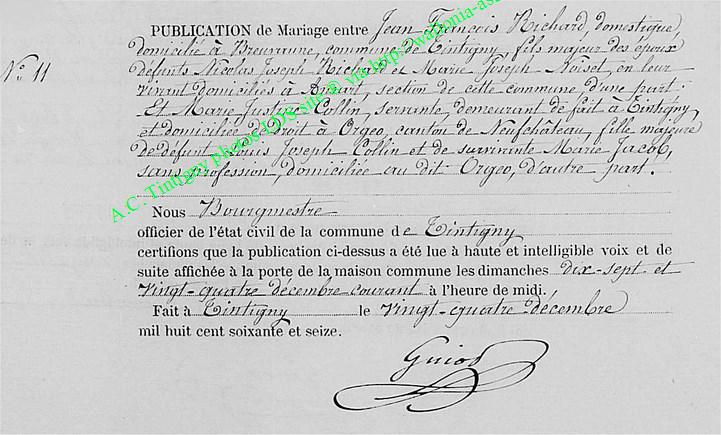 PUBLICATION de Mariage entre Jean François Richard, domestique,
domicilié à Breuvanne, commune de Tintigny, fils majeur des époux
N° 11
défunts Nicolas Joseph Richard et Marie Joseph Noiset, en leur
vivant domiciliés à Ansart, section de cette commune d'une part.
Et Marie Justine Collin, servante, demeurant de fait à Tintigny
et domiciliée de Droit à Orgeo, canton de Neufchâteau, fille majeure
de défunt Louis Joseph Collin et de survivante Marie Jacob,
sans profession, domiciliée au dit Orgeo, d'autre part.
Nous Bourgmestre
officier de l'état civil de la commune de Tintigny
certifions que la publication ci-dessus a été lue à haute et intelligible voix et de
suite affichée à la porte de la maison commune les dimanches dix-sept et
vingt-quatre décembre courant à l'heure de midi.
Fait à Tintigny le vingt-quatre décembre
mil huit cent soixante et seize.
Guiot
A.C. Tintigny photos LDS site @ via http://wallonia-as